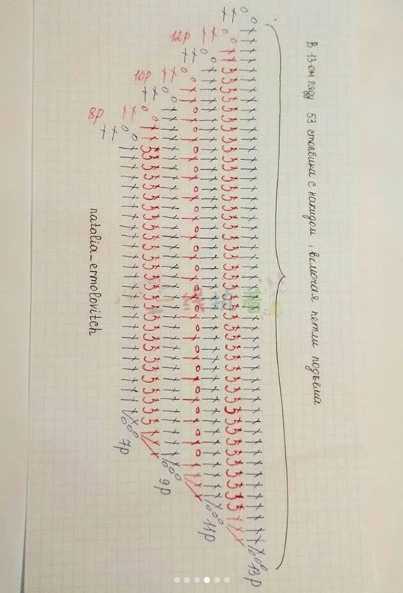 В 13-ом ряду 53 столбика с накидом, включая петли подъёма
12р
10р
8р
7р
9р
11р
13р
natalia_ermolovitch